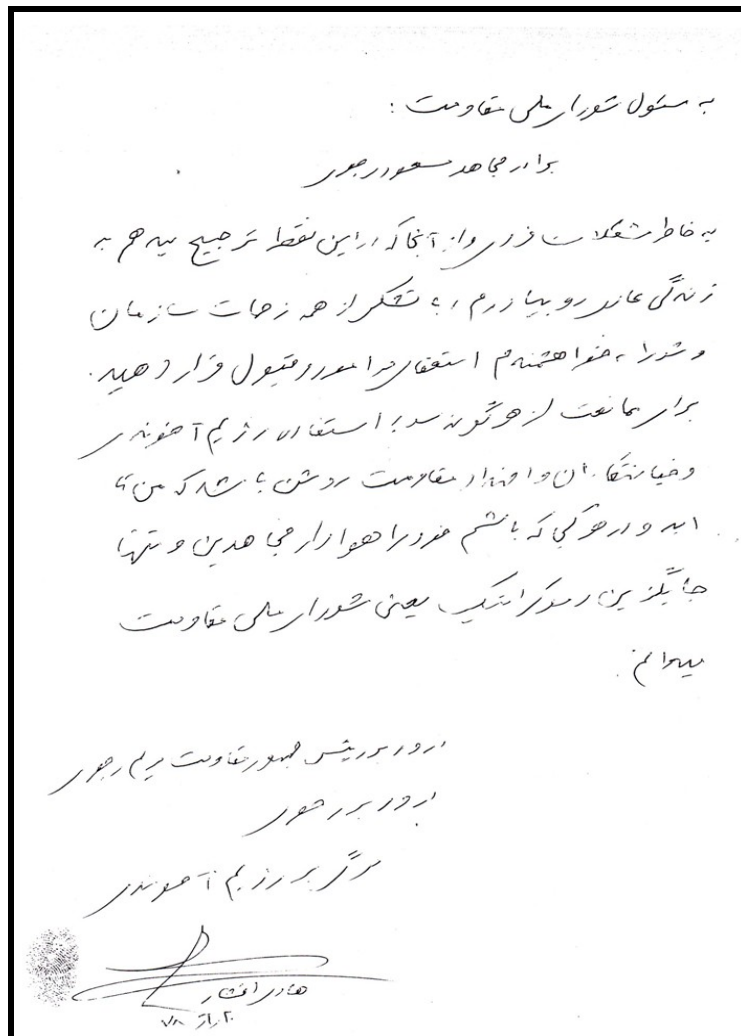 به مسئول شورای ملی مقاومت :
برادر مجاهد مسعود رجوی
به خاطر مشکلات فردی و از آنجا که در این نقطه ترجیح میدهم به
زندگی عادی رو بیاورم ، با تشکر از همه زحمات سازمان
و شورا ، خواهشمندم استعفای مرا مورد قبول قرار دهید .
برای ممانعت از هرگونه سوء استفاده رژیم آخوندی
و خیانتکاران و اضداد مقاومت روشن باشد که من تا
ابد و در هر کجا که باشم خود را هوادار مجاهدین و تنها
جایگزین دموکراتیک یعنی شورای ملی مقاومت
میدانم .
درود بر رئیس جمهور مقاومت مریم رجوی
درود بر رجوی
مرگ بر رژیم آخوندی
هادی افشار